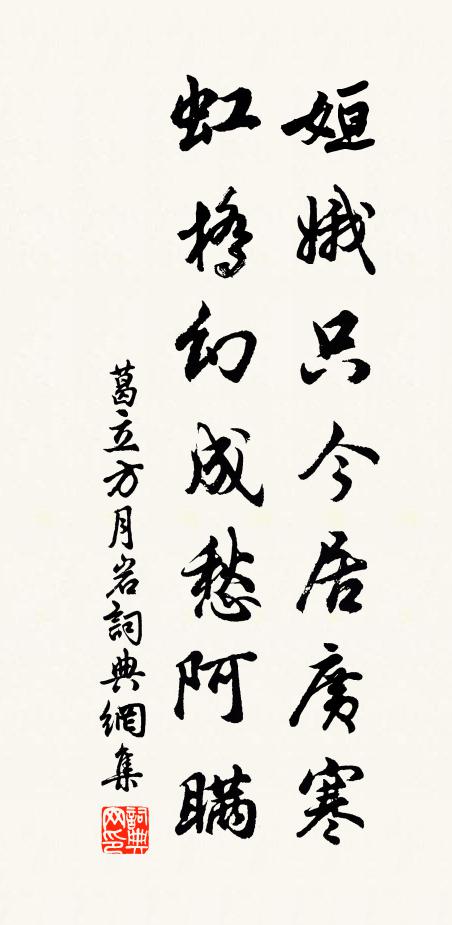 姮娥只今居廣寒
虹橋幻成愁阿瞞
葛立方月岩詞典網集
詞典網印